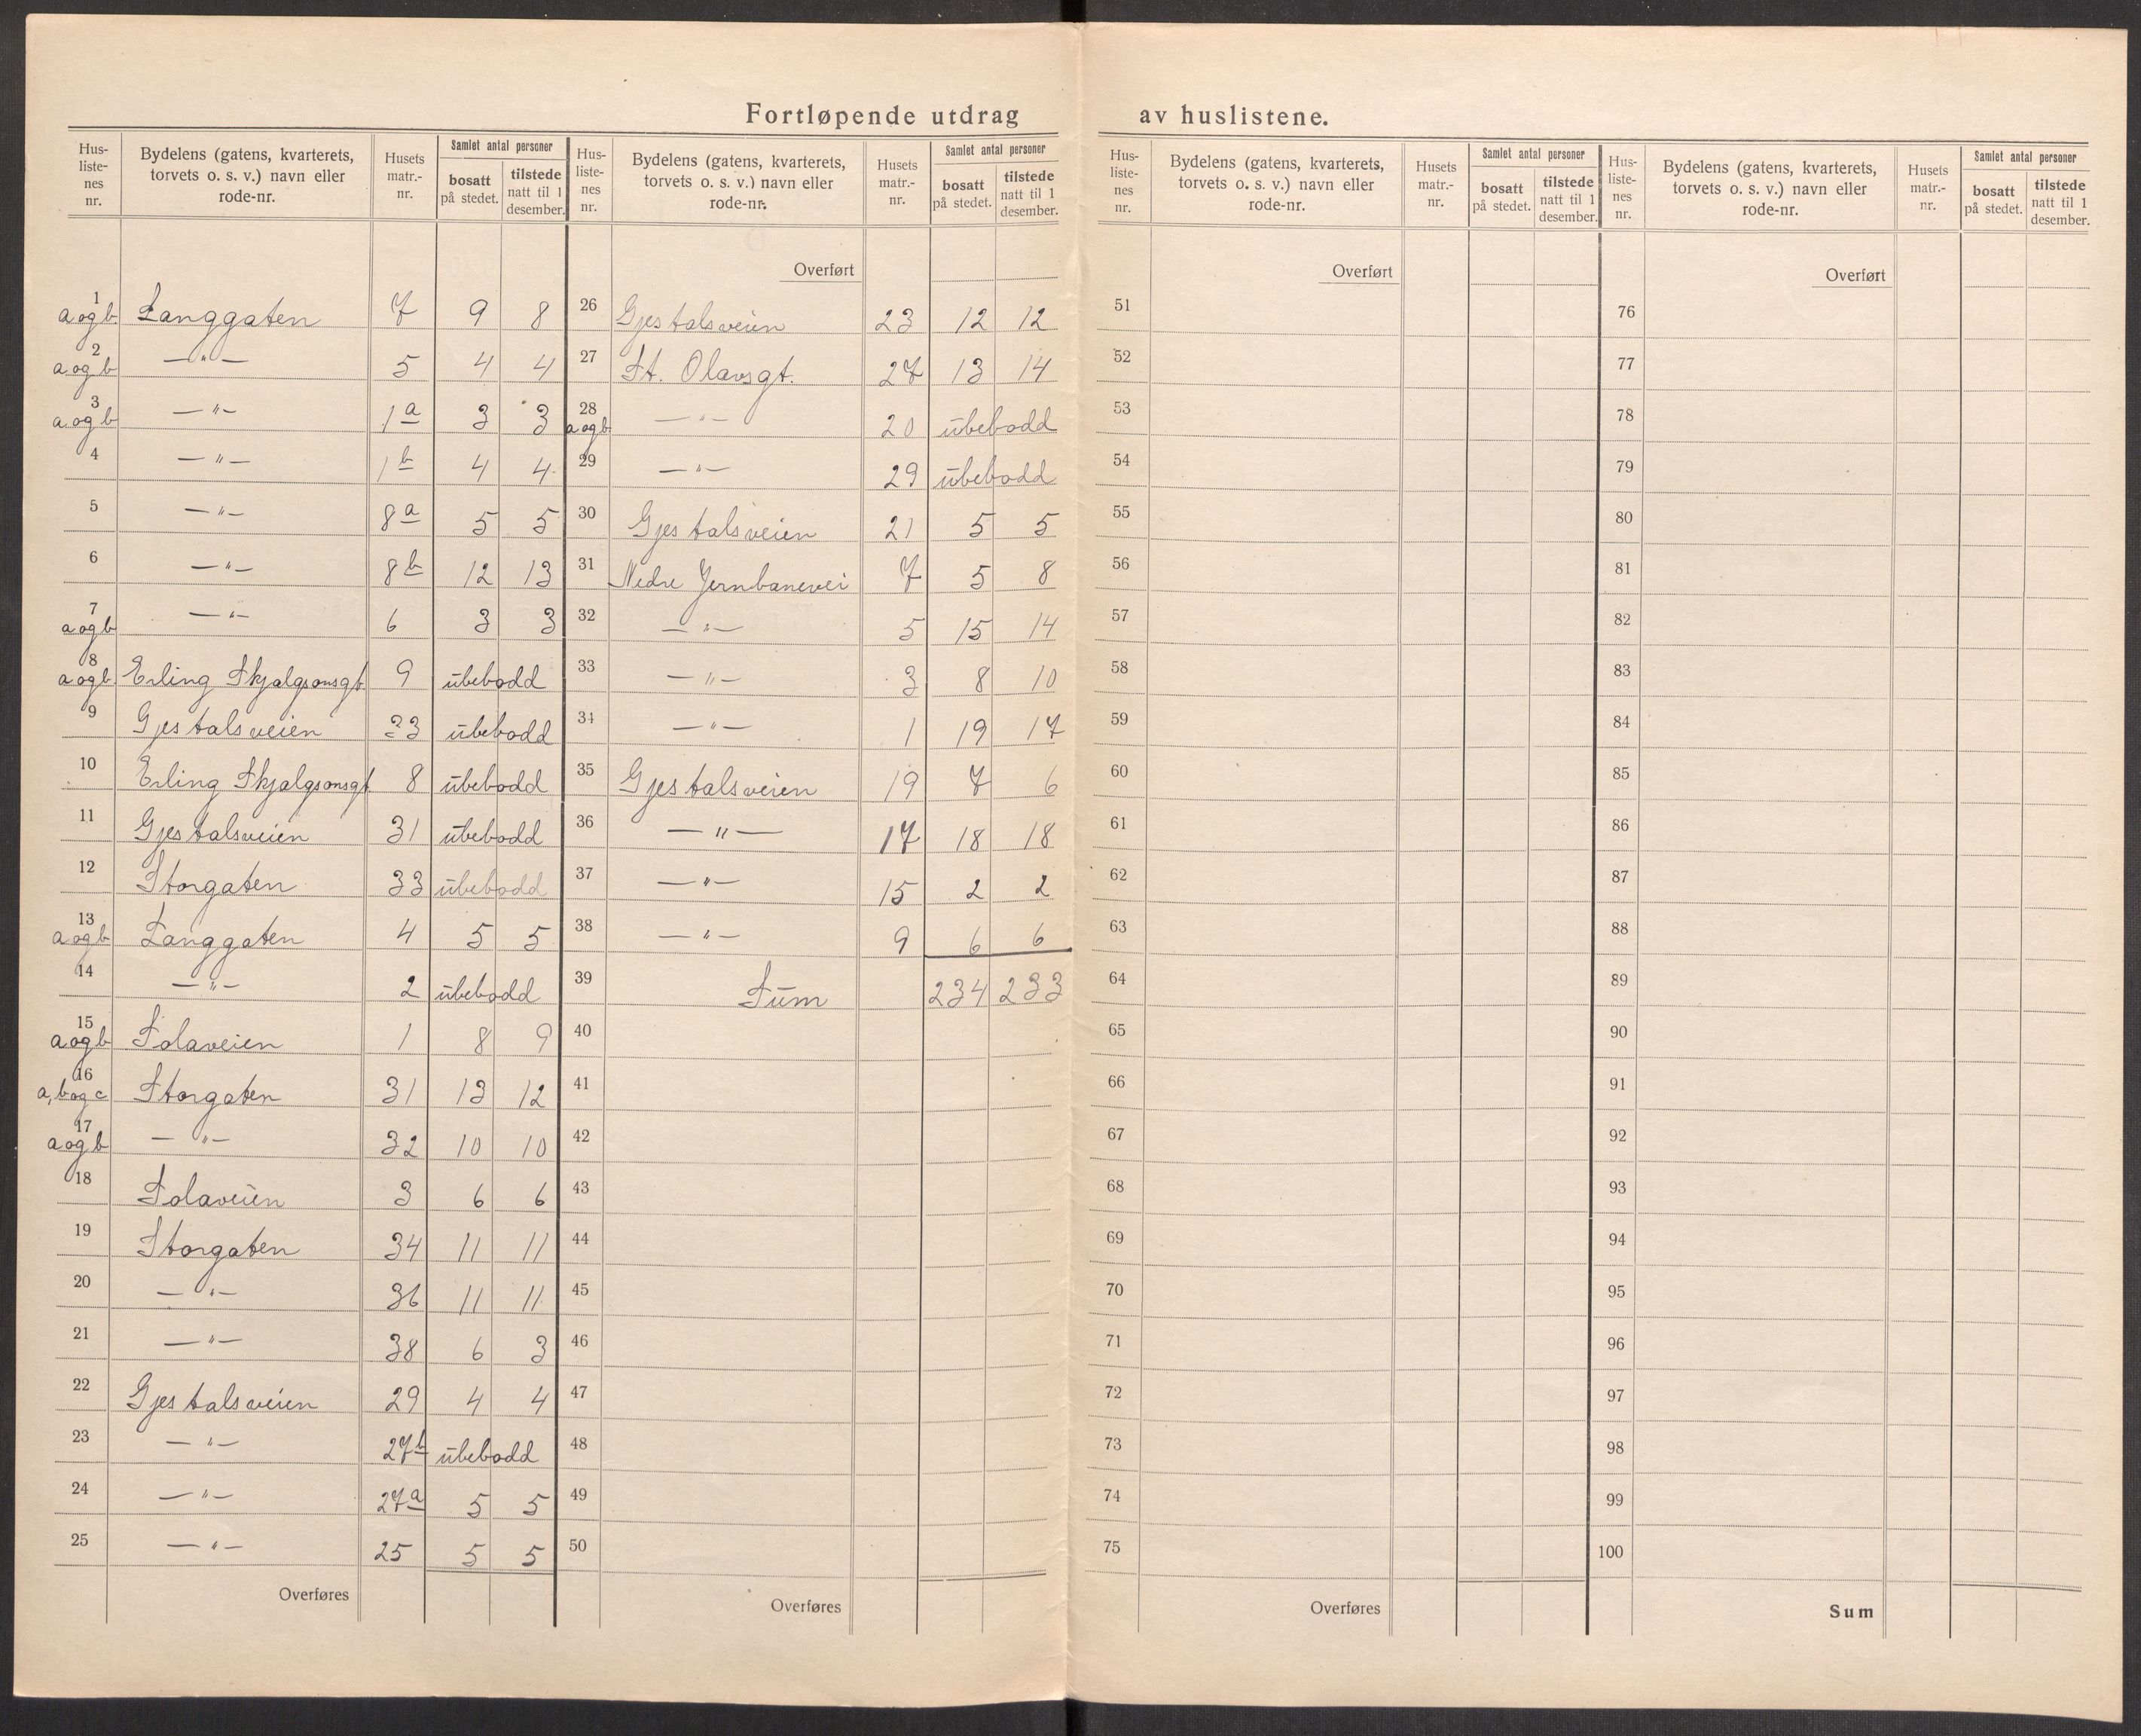 Fortløpende utdrag av huslistene.
Hus-liste-nes nr. | Bydelens (gatens, kvarterets, torvets o. s. v.) navn eller rode-nr. | Husets matr.-nr. | Samlet antal personer | bosatt på stedet. | tilstede natt til 1 desember.
Hus-liste-nes nr. | Bydelens (gatens, kvarterets, torvets o. s. v.) navn eller rode-nr. | Husets matr.-nr. | Samlet antal personer | bosatt på stedet. | tilstede natt til 1 desember.
Hus-liste-nes nr. | Bydelens (gatens, kvarterets, torvets o. s. v.) navn eller rode-nr. | Husets matr.-nr. | Samlet antal personer | bosatt på stedet. | tilstede natt til 1 desember.
Hus-liste-nes nr. | Bydelens (gatens, kvarterets, torvets o. s. v.) navn eller rode-nr. | Husets matr.-nr. | Samlet antal personer | bosatt på stedet. | tilstede natt til 1 desember.
1 a og b Langgaten 7 9 8
2 a og b —"— 5 4 4
3 a og b —"— 1a 3 3
4 —"— 1b 4 4
5 —"— 8a 5 5
6 —"— 8b 12 13
7 a og b —"— 6 3 3
8 a og b Erling Skjalgsonsgt. 9 ubebodd
9 Gjestalsveien 33 ubebodd
10 Erling Skjalgsonsgt 8 ubebodd
11 Gjestalsveien 31 ubebodd
12 Storgaten 33 ubebodd
13 a og b Langgaten 4 5 5
14 —"— 2 ubebodd
15 a og b Solaveien 1 8 9
16 a, b og c Storgaten 31 13 12
17 a og b —"— 32 10 10
18 Solaveien 3 6 6
19 Storgaten 34 11 11
20 —"— 36 11 11
21 —"— 38 6 3
22 Gjestalsveien 29 4 4
23 —"— 27b ubebodd
24 —"— 27a 5 5
25 —"— 25 5 5
Overføres
Overført
26 Gjestalsveien 23 12 12
27 St. Olavsgt. 27 13 14
28 a og b —"— 20 ubebodd
29 —"— 29 ubebodd
30 Gjestalsveien 21 5 5
31 Nedre Jernbanevei 7 5 8
32 —"— 5 15 14
33 —"— 3 8 10
34 —"— 1 19 17
35 Gjestalsveien 19 7 6
36 —"— 17 18 18
37 —"— 15 2 2
38 —"— 9 6 6
39 Sum 234 233
40
41
42
43
44
45
46
47
48
49
50
Overføres
Overført
51
52
53
54
55
56
57
58
59
60
61
62
63
64
65
66
67
68
69
70
71
72
73
74
75
Overføres
Overført
76
77
78
79
80
81
82
83
84
85
86
87
88
89
90
91
92
93
94
95
96
97
98
99
100
Sum